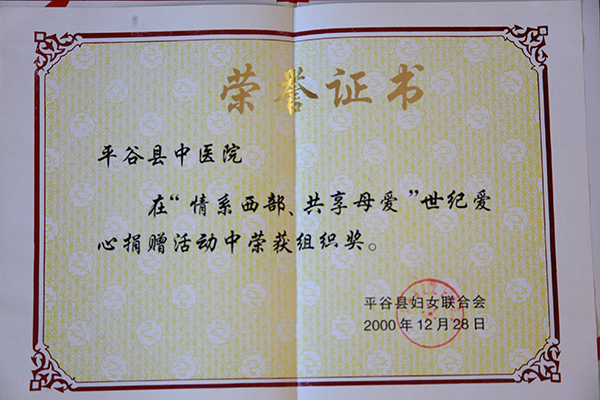 荣誉证书
平谷县中医院
在“情系西部、共享母爱”世纪爱
心捐赠活动中荣获组织奖。
平谷县妇女联合会
2000年12月28日